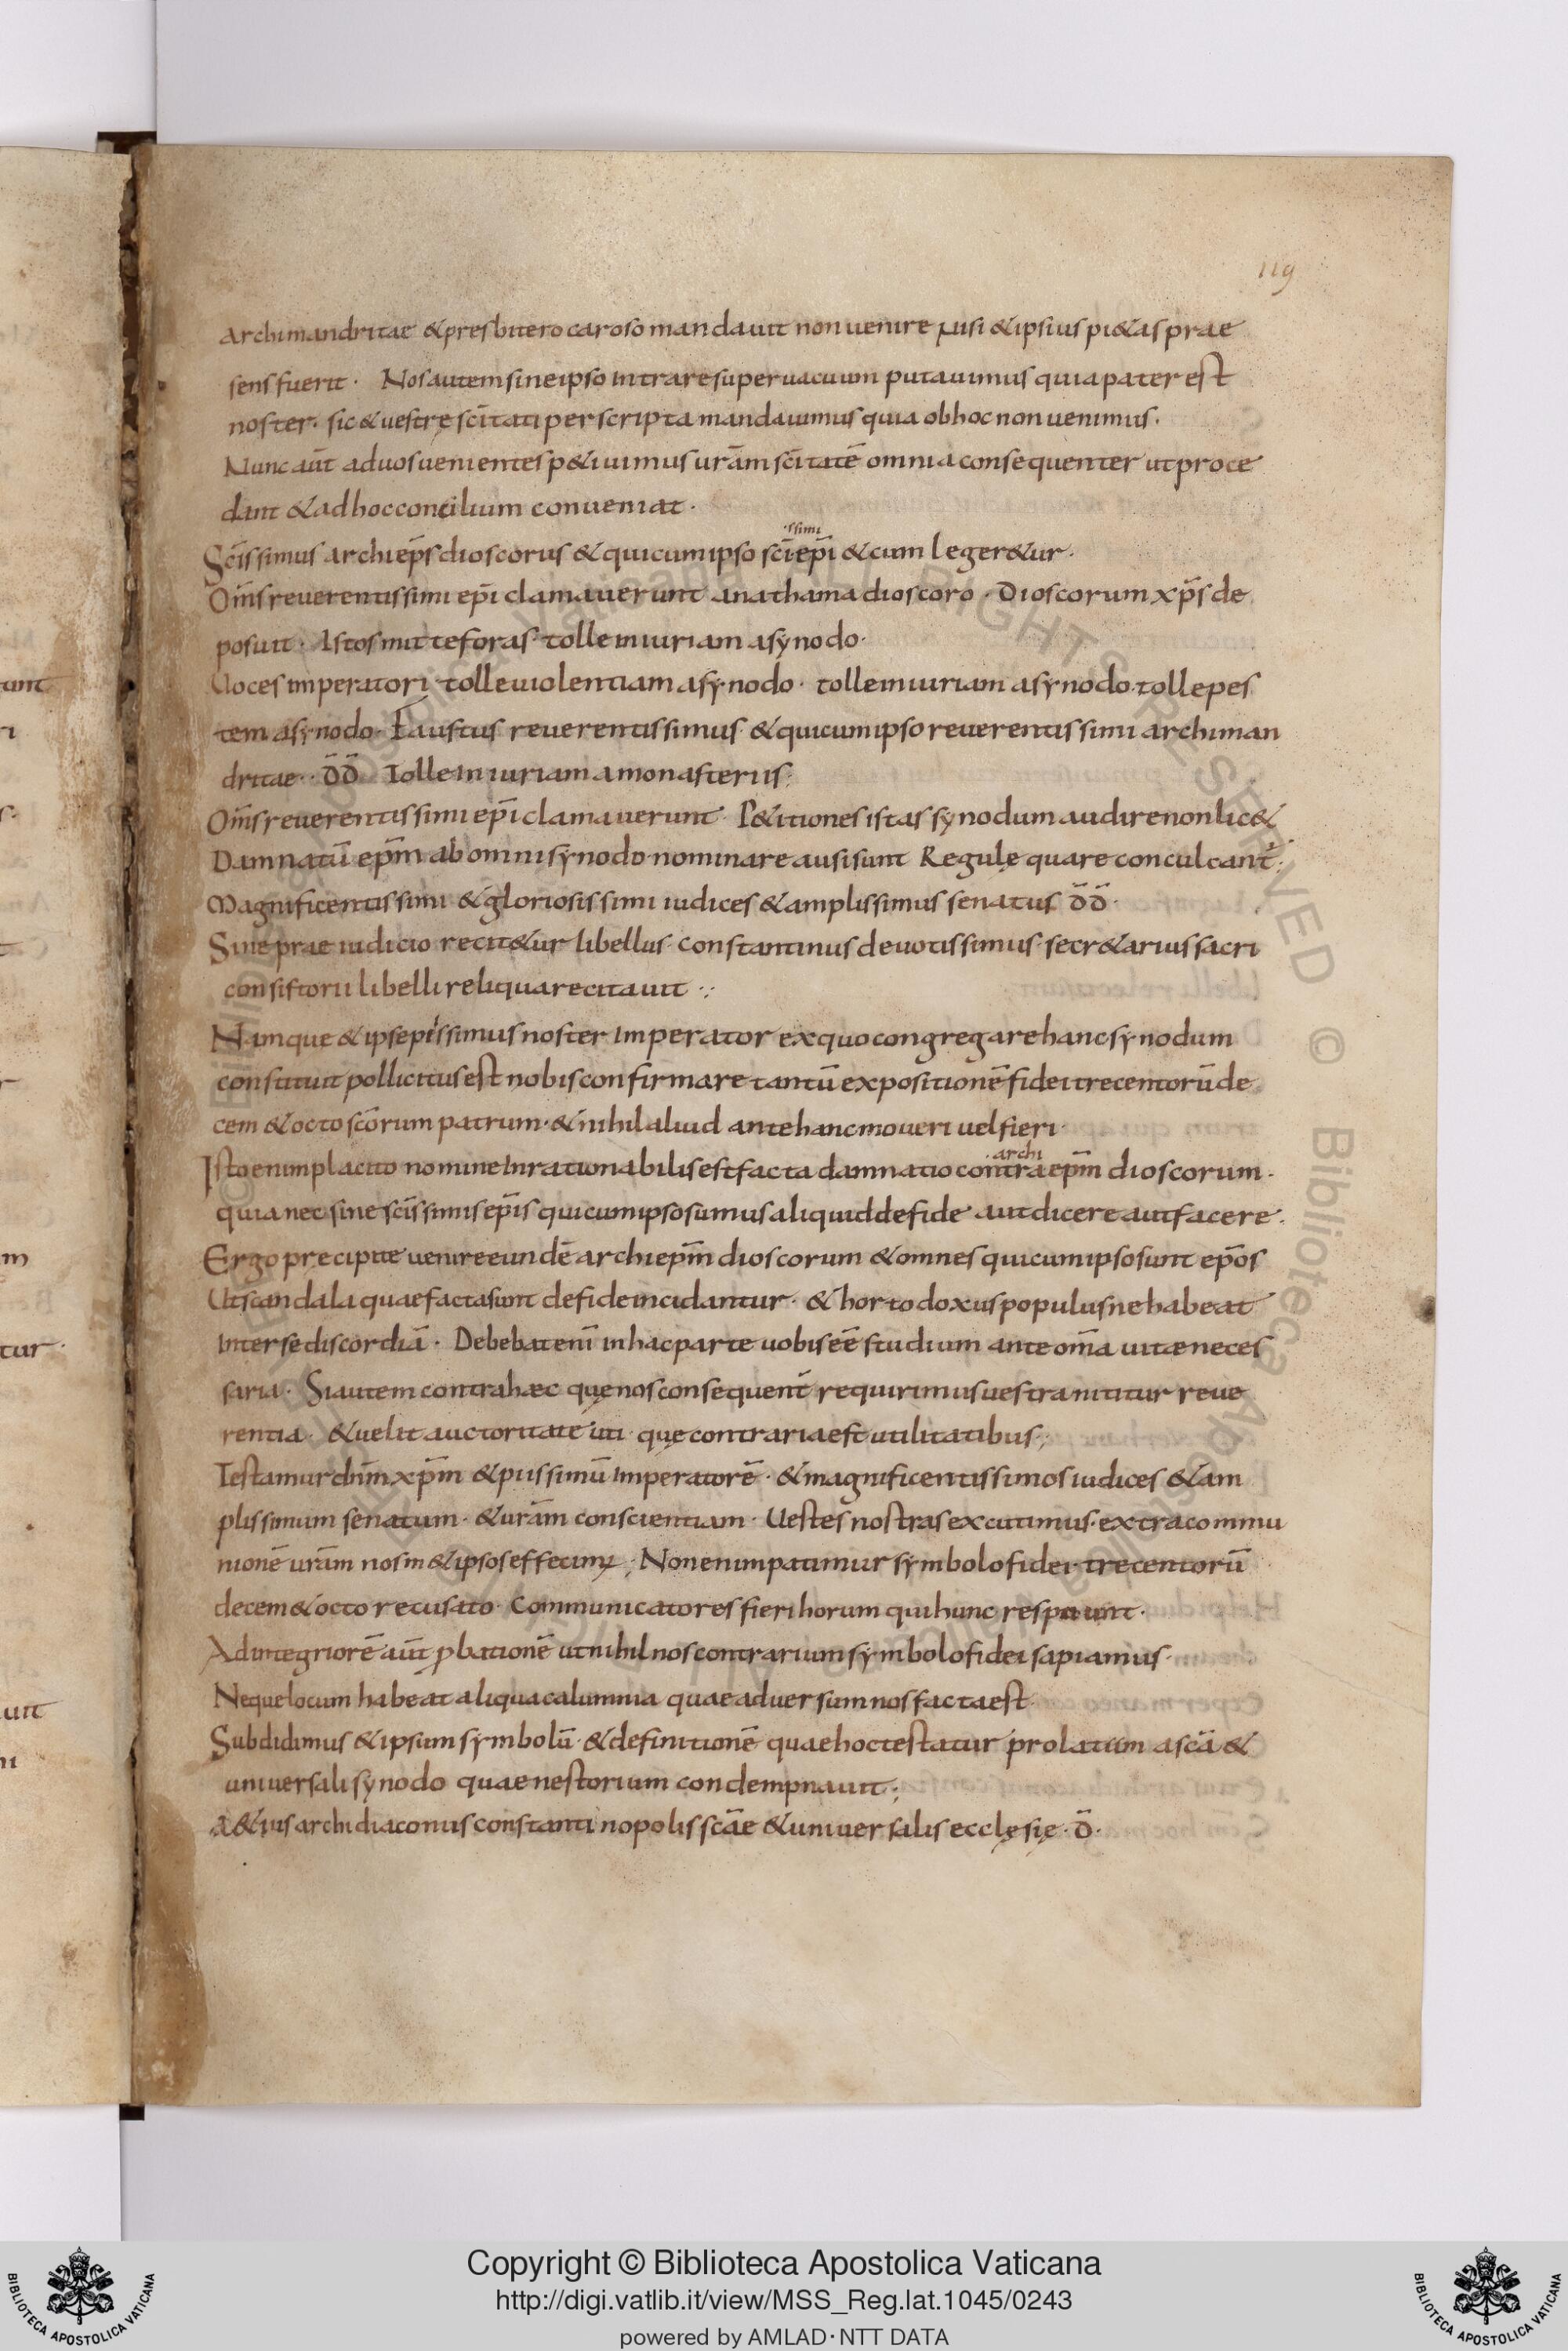 119
archimandritae &presbitero caroso mandauit non uenire nisi &ipsius pi&as prae
sens fuerit · Nos autem sine ipso intrare superuacuum putauimus quia pater est
noster· sic &uestrę sc̄itati per scripta mandauimus quia ob hoc non uenimus·
Nunc aūt ad uos uenientes p&iuimus ur̄am sc̄itatē omnia consequenter ut proce
dant &ad hoc concilium conueniat·
·ssimi
Sc̄issimus archiep̄s dioscorus &qui cum ipso sc̄i ep̄i &cum leger&ur·
Om̄s reuerentissimi ep̄i clamauerunt anathama dioscoro · Dioscorum xp̄s de
posuit · Istos mitte foras· tolle iniuriam a synodo·
Uoces imperatori· tolle uiolentiam a synodo· tolle iniuriam a synodo· tolle pes
tem a synodo· Faustus reuerentissimus &qui cum ipso reuerentissimi archiman
dritae·· d̄d̄ Tolle iniuriam a monasteriis;
Om̄s reuerentissimi ep̄i clamauerunt· P&itiones istas synodum audire non lic&
Damnatū ep̄m ab omni synodo nominare ausi sunt Regulę quare conculcant̄;
Magnificentissimi &gloriosissimi iudices &amplissimus senatus d̄d̄·
Sine prae iudicio recit&ur libellus· constantinus deuotissimus· secr&arius sacri
consistorii libelli reliqua recitauit ·:
Namque &ipse piissimus noster Imperator ex quo congregare hanc synodum
constituit pollicitus est nobis confirmare tantū expositionē fidei trecentorū de
cem &octo sc̄orum patrum· &nihil aliud ante hanc moueri uel fieri·
·archi
Isto enim placito nomine Inrationabilis est facta damnatio contra ep̄m dioscorum·
quia nec sine sc̄issimis ep̄is qui cum ipso sumus aliquid de fide aut dicere aut facere·
Ergo pręcipite uenire eundē archiep̄m dioscorum &omnes qui cum ipso sunt ep̄os
Ut scandala quae facta sunt de fide incidantur· & hortodoxus populus ne habeat
inter se discordiā · Debebat eni͞ in hac parte uobis eē studium ante om̄a uitæ neces
saria · Si autem contra hæc quę nos consequent̄ requirimus uestra nititur reue
rentia · &uelit auctoritate uti· quę contraria est utilitatibus;
Testamur dn̄m xp̄m &piissimū Imperatorē · &magnificentissimos iudices &am
plissimum senatum· &ur̄am conscientiam· Uestes nostras excutimus· extra commu
nionē ur̄am nosm&ipsos effecimus; Non enim patimur symbolo fidei trecentorū
decem &octo recusato· Communicatores fieri horum qui hunc respuunt·
Ad integriorē aūt p̱bationē ut nihil nos contrarium symbolo fidei sapiamus·
Neque locum habeat aliqua calumnia quae aduersum nos facta est·
Subdidimus &ipsum symbolū· &definitionē quae hoc testatur prolatum a sc̄a &
uniuersali synodo quae nestorium condempnauit;
a&ius archidiaconus constantinopolis sc̄ae &uniuersalis ecclęsię· d̄·
Copyright © Biblioteca Apostolica Vaticana
http://digi.vatlib.it/view/MSS_Reg.lat.1045/0243
powered by AMLAD·NTT DATA